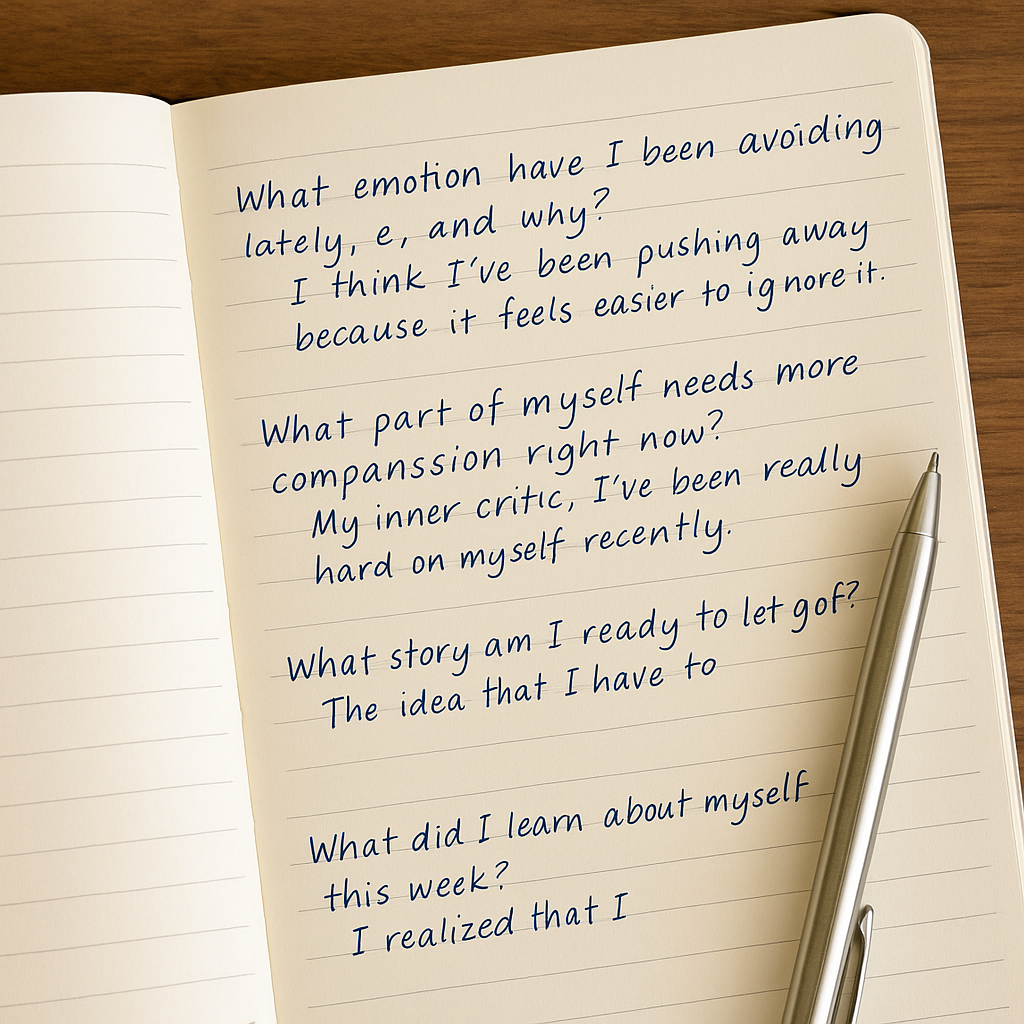 What emotion have I been avoiding
lately, e, and why?
I think I've been pushing away
because it feels easier to ignore it.
What part of myself needs more
companssion right now?
My inner critic, I've been really
hard on myself recently.
What story am I ready to let gof?
The idea that I have to
What did I learn about myself
this week?
I realized that I